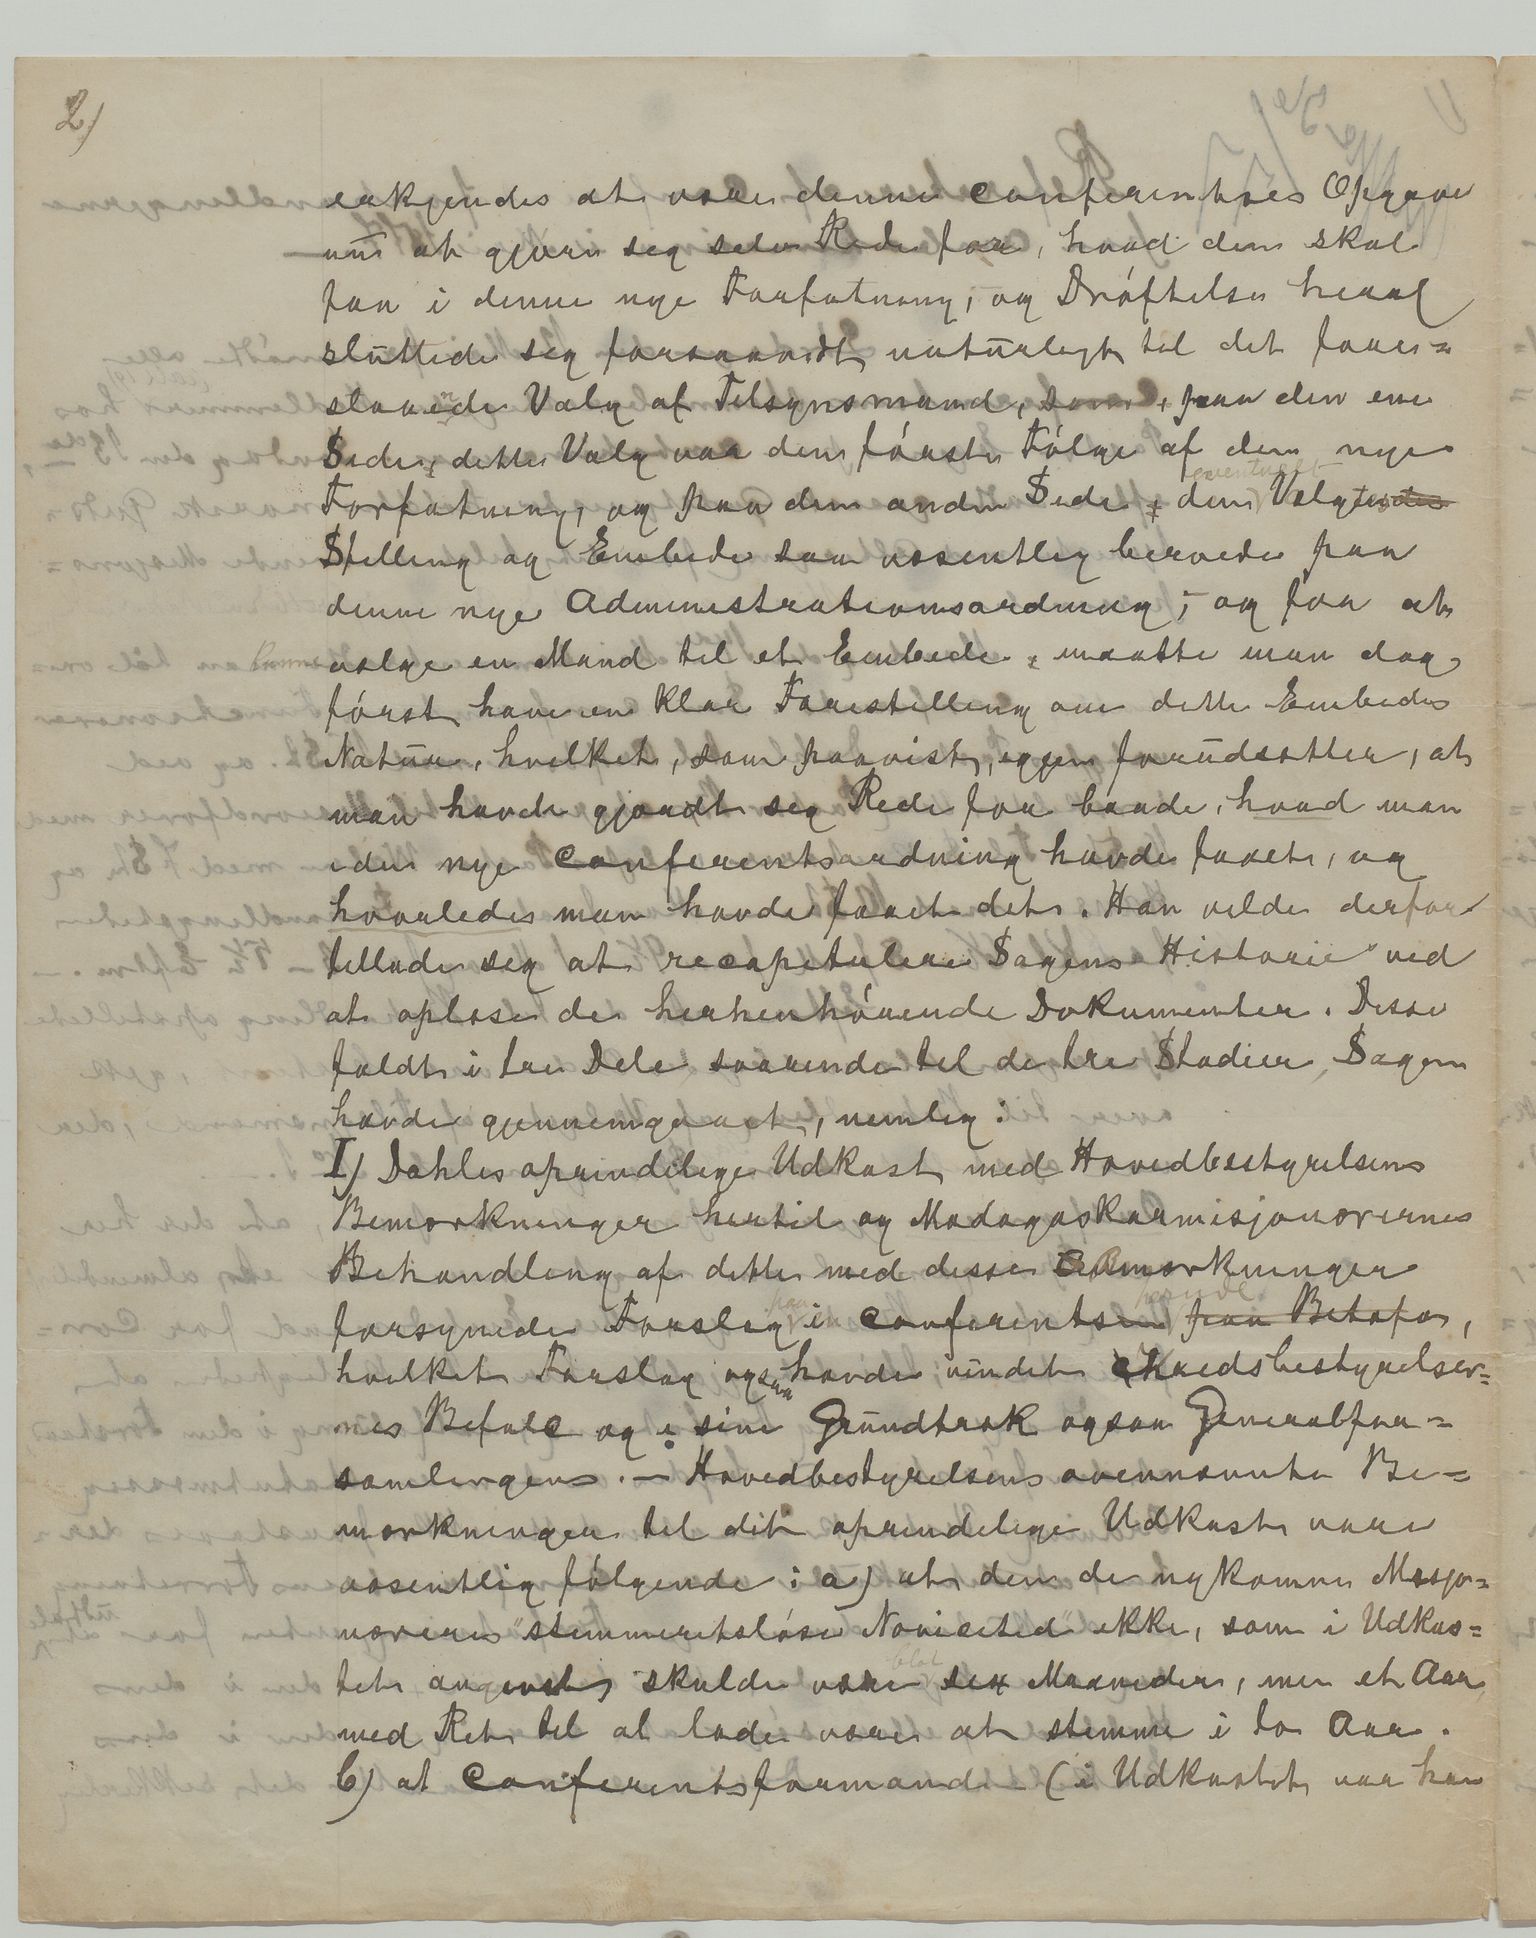 2)
erkjendes at være denne Conferentses Opgave
nu at gjøre sig selv Rede for, hvad den skal
faa i denne nye Forfatning, og Drøftelse heraf
sluttede sig forsaavidt naturligt til det fore=
staaende Valg af Tilsynsmand, som, paa den ene
Side, dette Valg var den første Følge af den nye
Forfatning, og paa den anden Side, den eventuelt Valgtes
Stilling og Embede saa væsentlig beroede paa
denne nye Administrationsordning; og for at
vælge en Mand til et Embede, maatte man dog
først have en klar Forestilling om dette Embedes
Natur, hvilket, som paavist, igjen forudsætter, at
man havde gjordt sig Rede for baade, hvad man
i den nye Conferentsordning havde faaet, og
hvorledes man havde faaet det. Han vilde derfor
tillade sig at recapitulere Sagens Historie ved
at oplæse de herhenhørende Dokumenter. Disse
faldt i tre Dele svarende til de tre Stadier, Sagen
havde gjennemgaaet, nemlig:
I) Dahles oprindelige Udkast med Hovedbestyrelsens
Bemærkninger hertil og Madagaskarmisjonærernes
Behandling af dette med disse Bemærkninger
forsynede Forslag paa Conferentsen paa Betafo,
hvilket Forslag ogsaa havde vundet Kredsbestyrelser=
nes Bifald og i sine Grundtræk ogsaa Generalfor=
samlingens. — Hovedbestyrelsens ovennævnte Be=
mærkninger til dit oprindelige Udkast vare
væsentlig følgende: a) at den de nykomne Misjo=
nærers "stemmeretsløse Novicetid" ikke, som i Udkas=
tet angivet, skulde være blot sex Maaneder, men et Aar
med Ret til at lade være at stemme i to Aar.
b) at Conferentsformand (i Udkastet var han